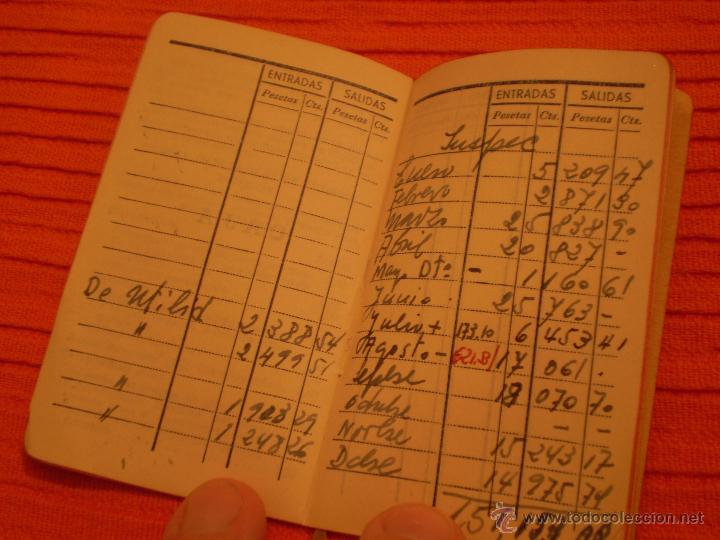 ENTRADAS SALIDAS
Pesetas Cts. Pesetas Cts.
De Utilid
" 2 388 54
2 499 51
"
" 1 903 29
1 248 26
ENTRADAS SALIDAS
Pesetas Cts. Pesetas Cts.
Inspec
Enero 5 209 47
Febrero 2 871 30
Marzo 25 838 90
Abril 20 827 -
May. Dto - 1 160 61
Junio. 25 763 -
Julio + 173.10 6 453 41
Agosto. - 17 061 .
18 070 70
Octubre - -
Novbre 15 243 17
Dcbre 14 975 74
© www.todocoleccion.net